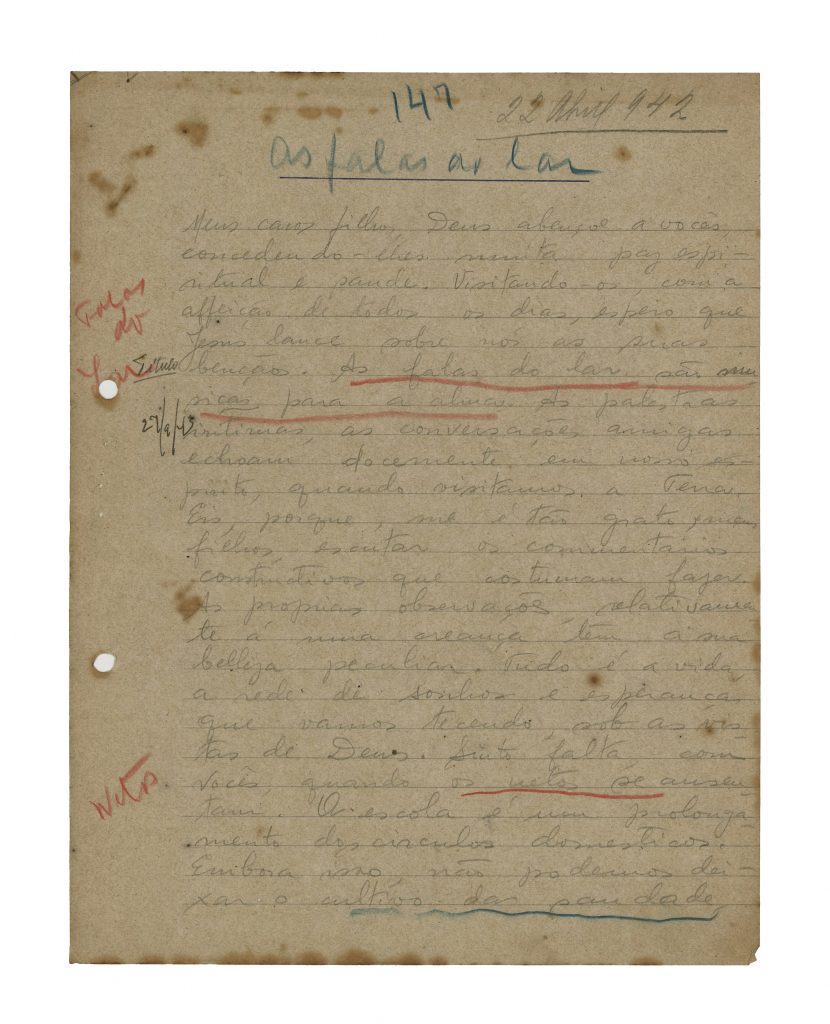 147
22 Abril 942
As falas do lar
Meus caros filhos, Deus abençoe a vocês,
concedendo-lhes muita paz espi-
ritual e saude. Visitando-os, com a
affeição de todos os dias, espero que
Jesus lance sobre nós as suas
bençãos. As falas do lar são mu
sicas para a alma. As palestras
intimas, as conversações amigas
echoam docemente em nosso es-
pirito, quando visitamos a Terra.
Eis, porque, me é tão grato, meus
filhos, escutar os commentarios
constructivos que costumam fazer.
As proprias observações, relativamen
te á uma creança, têm a sua
belleza peculiar. Tudo é a vida,
a rede de sonhos e esperanças
que vamos tecendo, sob as vis
tas de Deus. Sinto falta, com
vocês, quando os netos se ausen
tam. A escola é um prolonga
mento dos circulos domesticos.
Embora isso, não podemos dei-
xar o cultivo das saudade,
Falas
do
Lar
Titulo
Netos